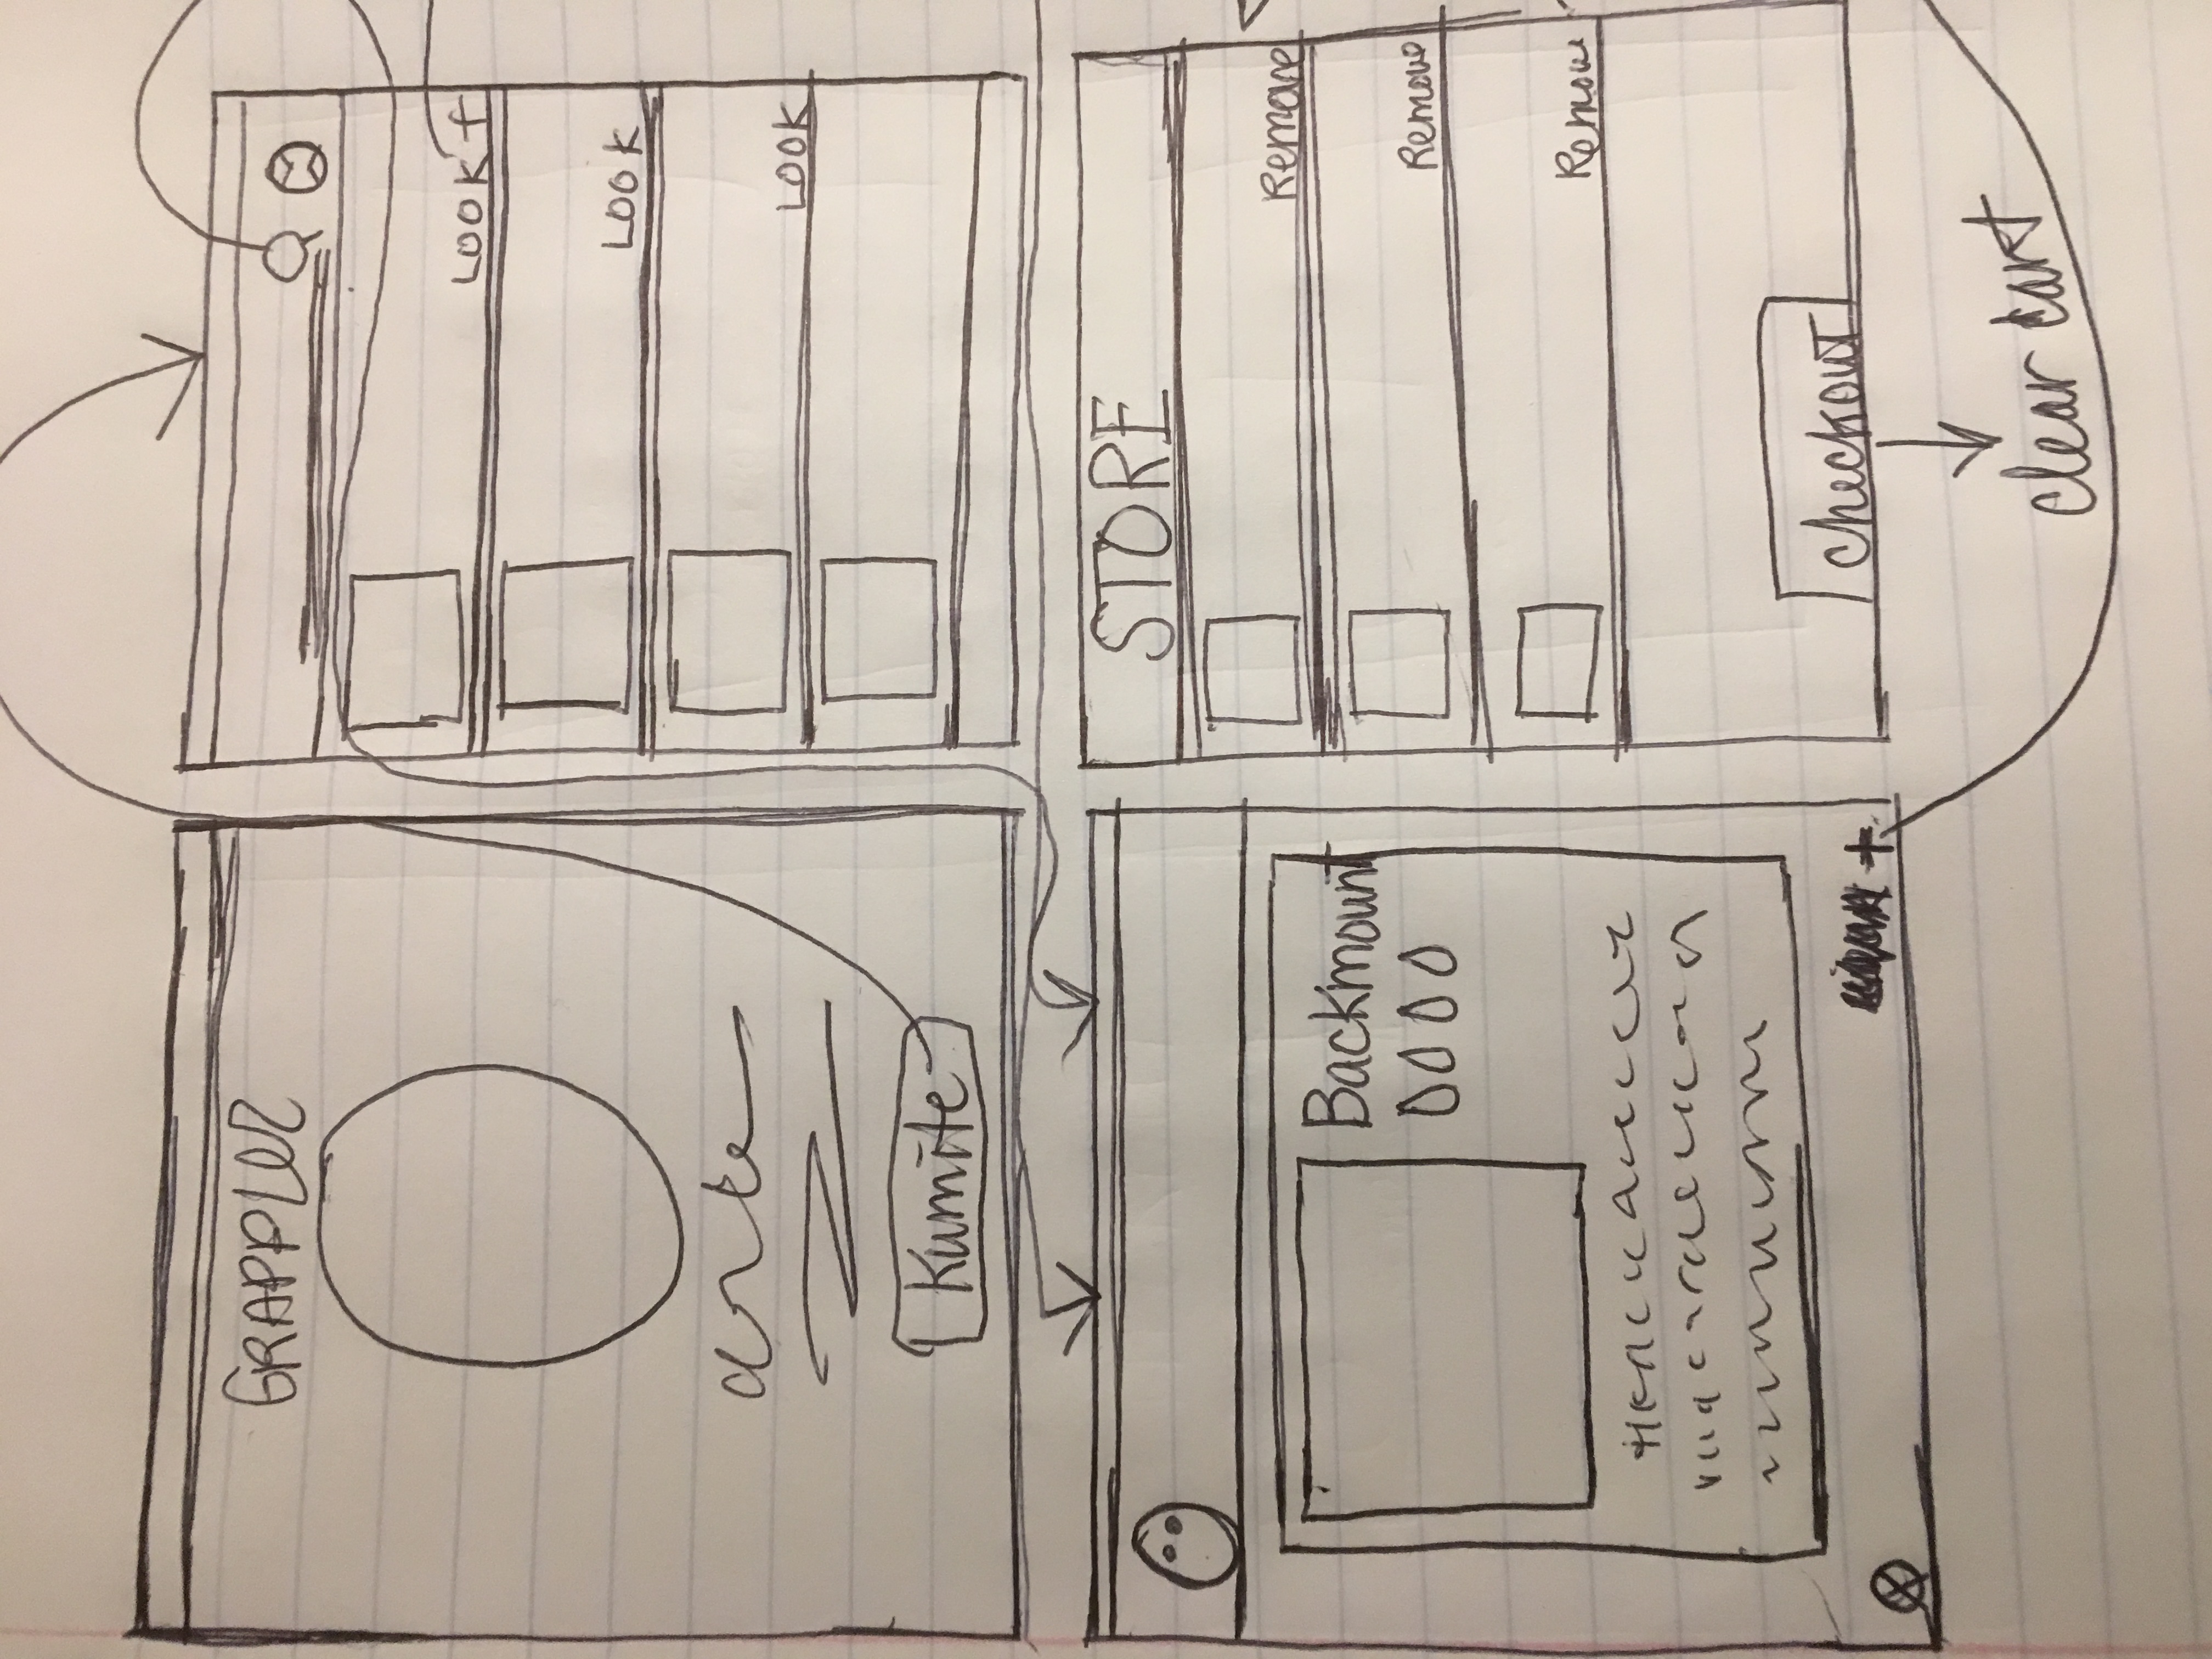 GRAPPLER
Kumite
LOOK +
LOOK
LOOK
Backmount
+
STORE
Remove
Remove
Remove
checkout
clear cart